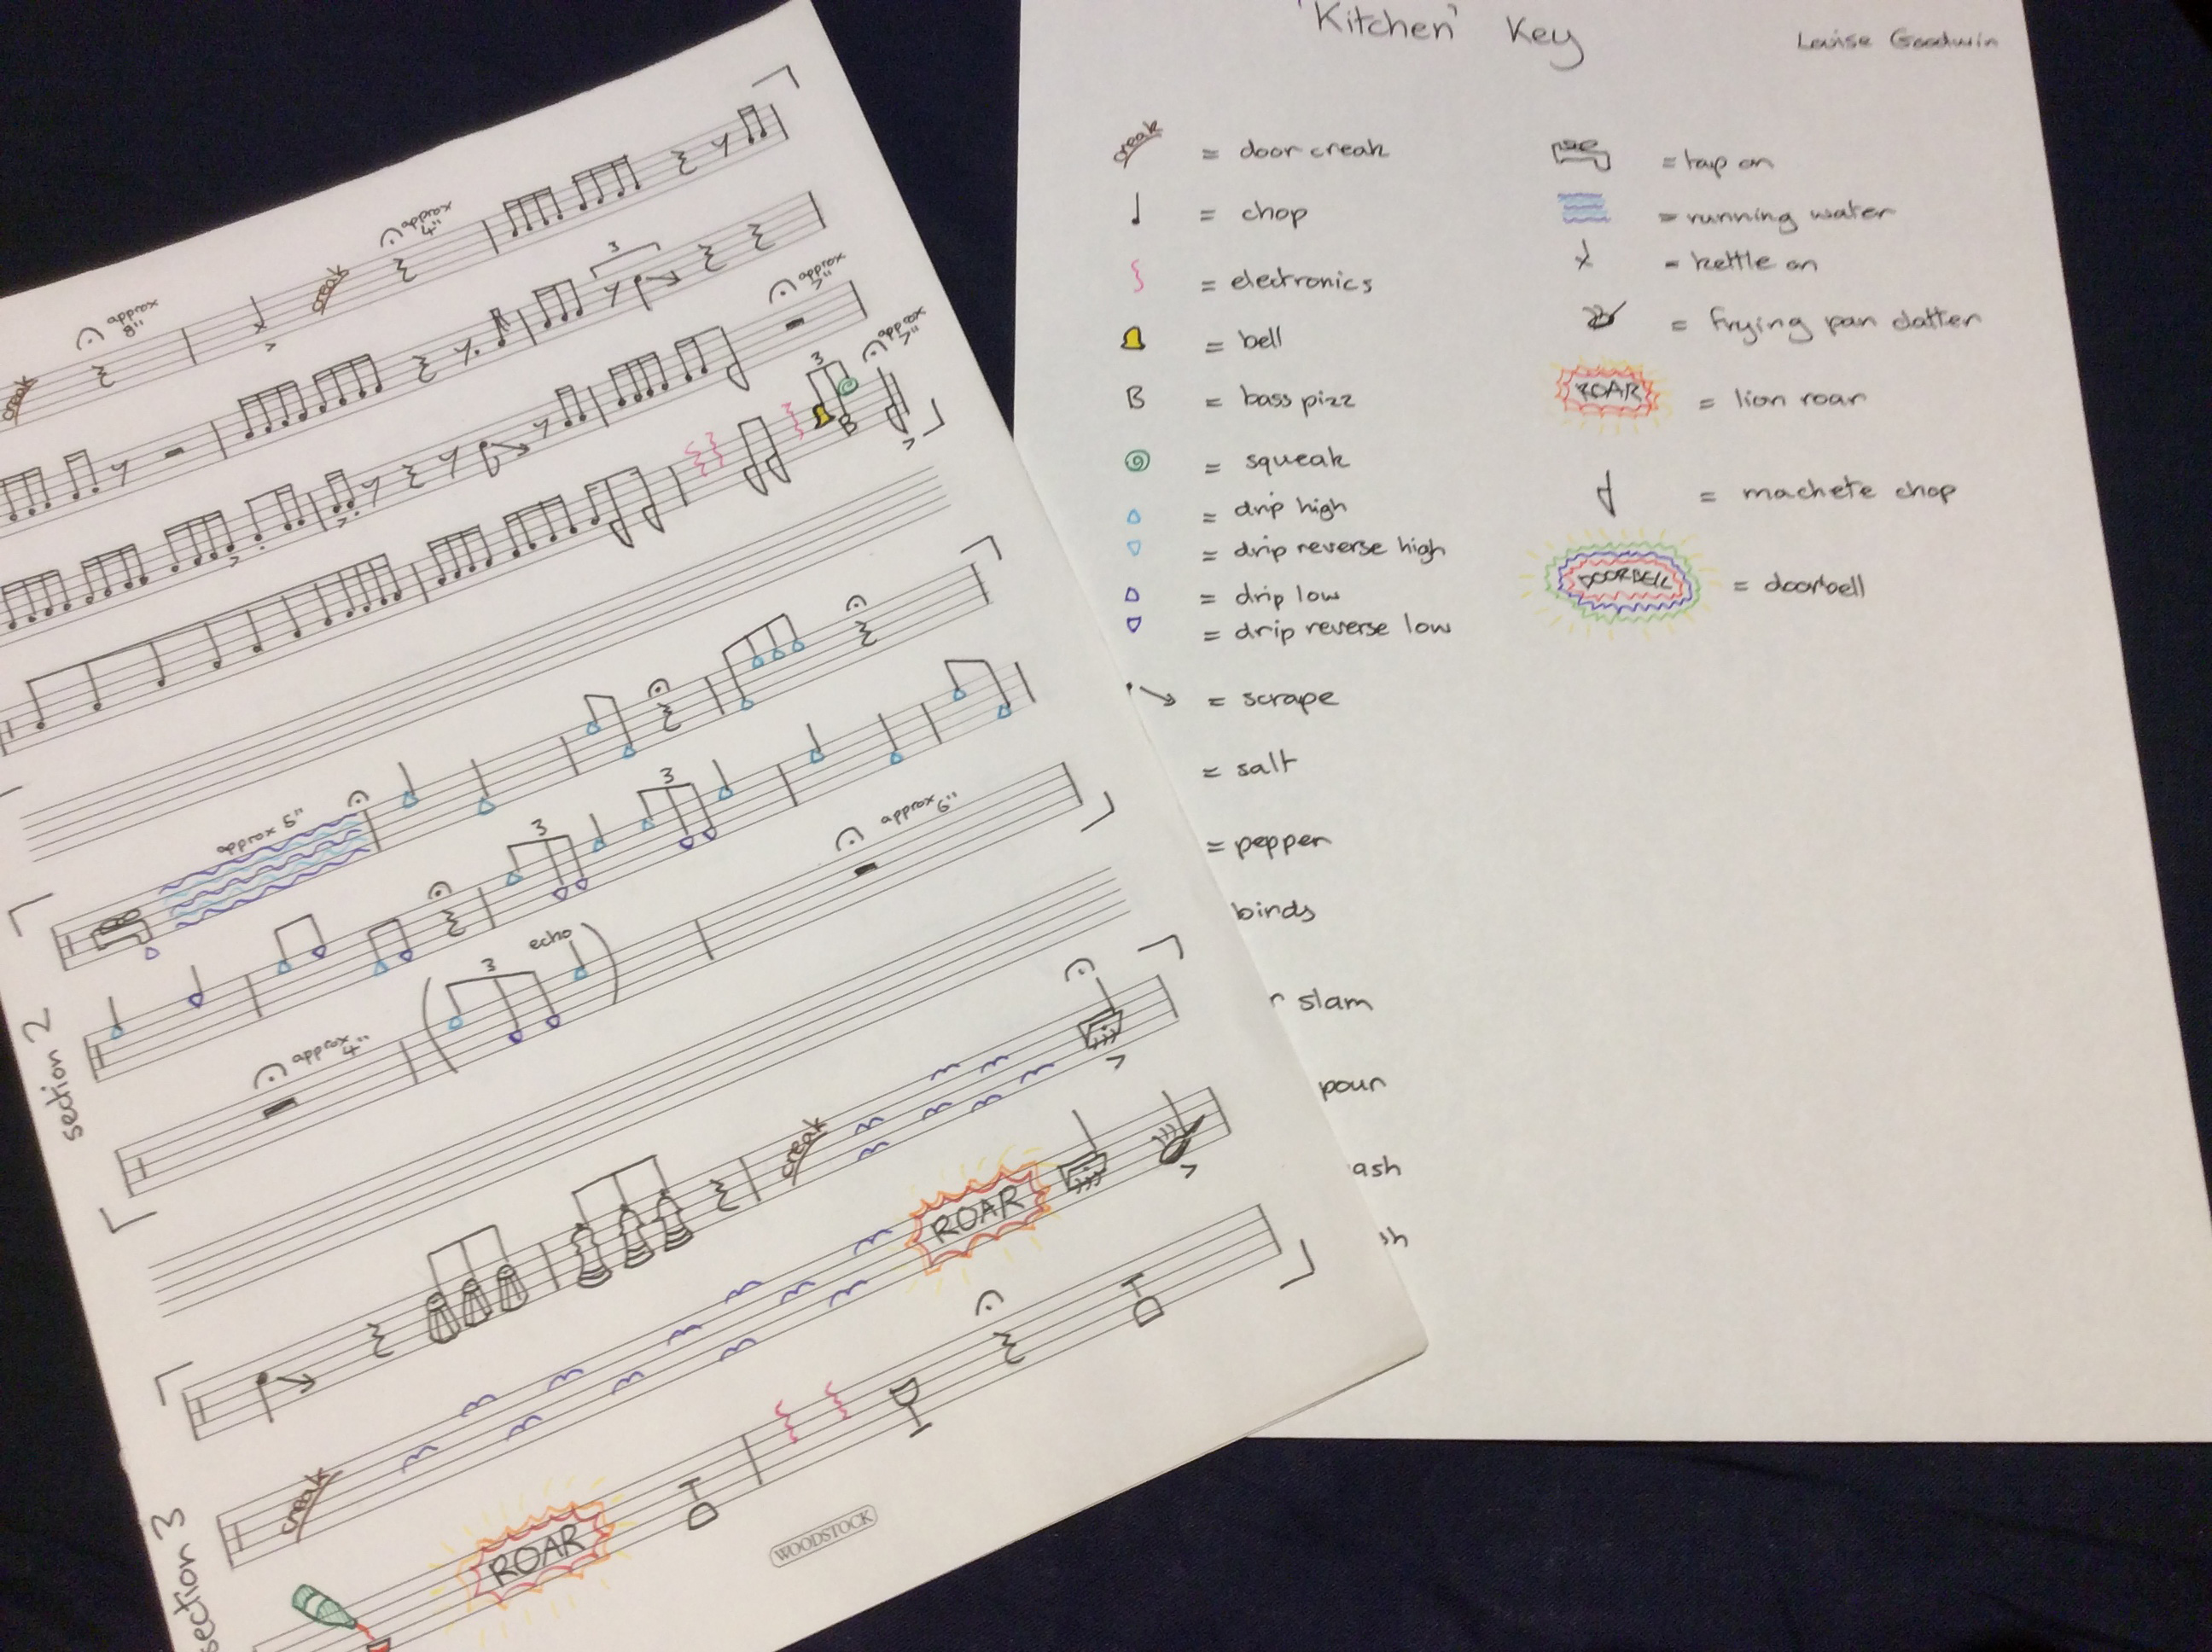 'Kitchen' Key
Louise Goodwin
creak = door creak
= chop
= electronics
= bell
B = bass pizz
= squeak
= drip high
= drip reverse high
= drip low
= drip reverse low
= scrape
= salt
= pepper
birds
r slam
pour
ash
sh
= tap on
= running water
= kettle on
= frying pan clatter
ROAR = lion roar
= machete chop
DOORBELL = doorbell
creak
approx
8"
creak
approx
4"
3
approx
3
B
approx
7"
section 2
approx 5"
3
3
approx
4"
3
echo
approx 6"
section 3
creak
creak
ROAR
ROAR
WOODSTOCK